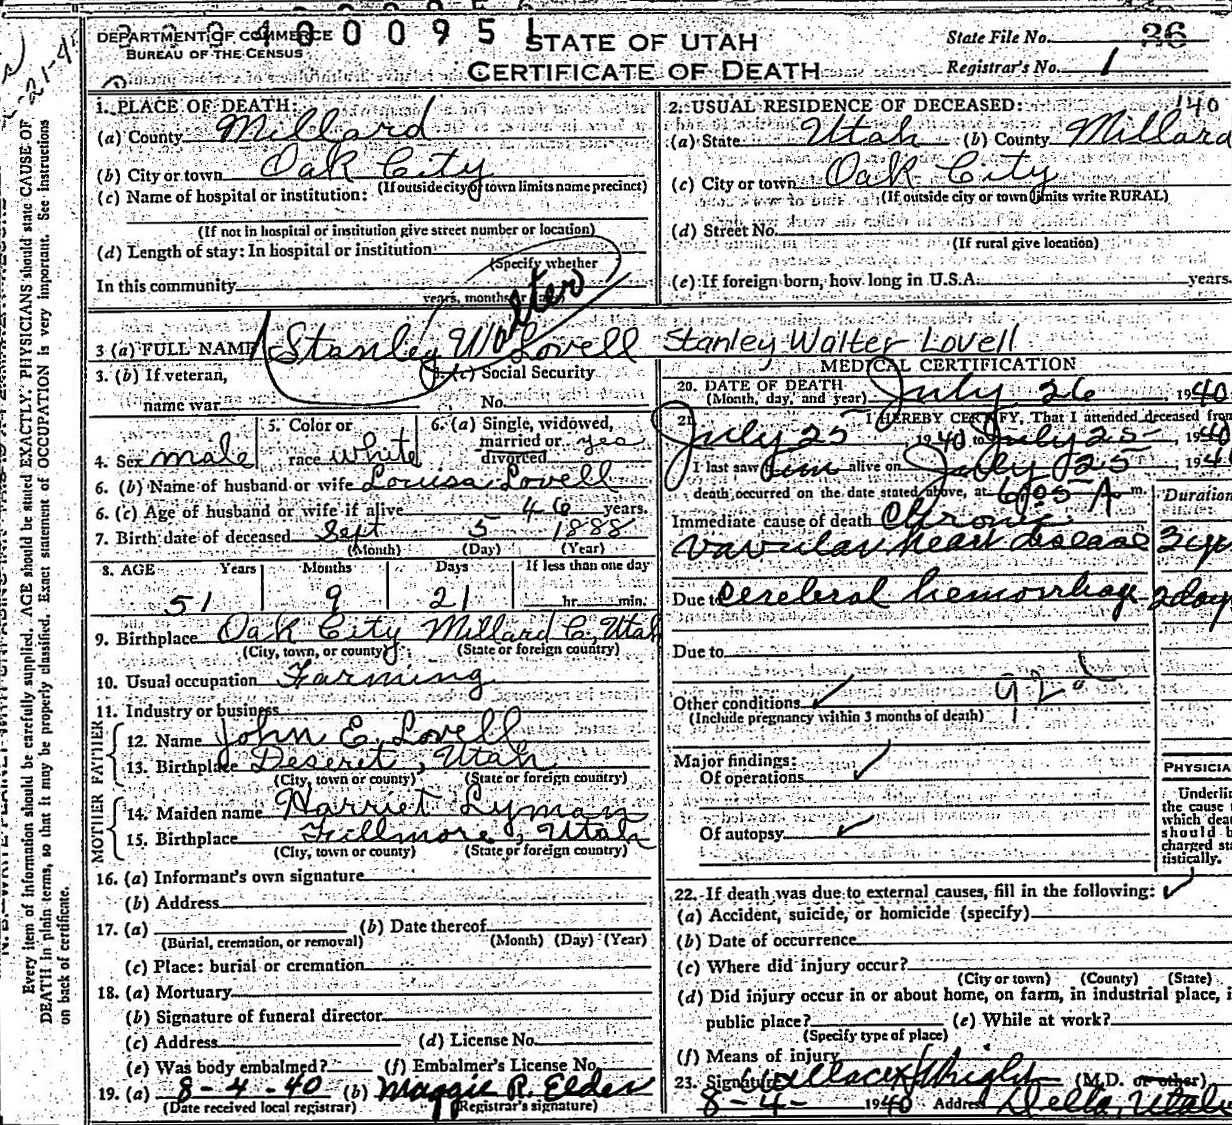 DEPARTMENT OF COMMERCE
BUREAU OF THE CENSUS
STATE OF UTAH
CERTIFICATE OF DEATH
State File No. 36
Registrar's No. 1
1. PLACE OF DEATH:
(a) County Millard
(b) City or town Oak City
(If outside city or town limits name precinct)
(c) Name of hospital or institution:
(If not in hospital or institution give street number or location)
(d) Length of stay: In hospital or institution
(Specify whether
In this community
years, months or days)
2. USUAL RESIDENCE OF DECEASED: 140
(a) State Utah (b) County Millard
(c) City or town Oak City
(If outside city or town limits write RURAL)
(d) Street No.
(If rural give location)
(e) If foreign born, how long in U.S.A. years
3 (a) FULL NAME Stanley Walter Lovell Stanley Walter Lovell
3. (b) If veteran,
name war
3. (c) Social Security
No.
4. Sex male
5. Color or
race white
6. (a) Single, widowed,
married or yes
divorced
6. (b) Name of husband or wife Louisa Lovell
6. (c) Age of husband or wife if alive 46 years.
7. Birth date of deceased Sept 5 1888
(Month) (Day) (Year)
8. AGE Years Months Days If less than one day
51 9 21 hr. min.
9. Birthplace Oak City Millard C, Utah
(City, town, or county) (State or foreign country)
10. Usual occupation Farming
11. Industry or business
FATHER
12. Name John E. Lovell
13. Birthplace Deseret, Utah
(City, town or county) (State or foreign country)
MOTHER
14. Maiden name Harriet Lyman
15. Birthplace Fillmore, Utah
(City, town or county) (State or foreign country)
16. (a) Informant's own signature
(b) Address
17. (a) (b) Date thereof
(Burial, cremation, or removal) (Month) (Day) (Year)
(c) Place: burial or cremation
18. (a) Mortuary
(b) Signature of funeral director
(c) Address (d) License No.
(e) Was body embalmed? (f) Embalmer's License No.
19. (a) 8-4-40 (b) Maggie R. Elder
(Date received local registrar) (Registrar's signature)
MEDICAL CERTIFICATION
20. DATE OF DEATH July 26, 1940
(Month, day, and year)
21. I HEREBY CERTIFY, That I attended deceased from
July 25 1940 to July 25 1940
I last saw him alive on July 25, 194
death occurred on the date stated above, at 6:05 A m.
Duration
Immediate cause of death Chronic
vavular heart disease 3 yr
Due to cerebral hemorrhage 2 day
Due to
Other conditions 92
(Include pregnancy within 3 months of death)
Major findings:
Of operations
Of autopsy
PHYSICIA
Underli
the cause
which dea
should b
charged sta
tistically.
22. If death was due to external causes, fill in the following:
(a) Accident, suicide, or homicide (specify)
(b) Date of occurrence
(c) Where did injury occur?
(City or town) (County) (State)
(d) Did injury occur in or about home, on farm, in industrial place, i
public place? (e) While at work?
(Specify type of place)
(f) Means of injury
23. Signature Wright (M.D. or other)
8-4- 1940 Address Delta, Utah
Every item of information should be carefully supplied. AGE should be stated EXACTLY. PHYSICIANS should state CAUSE OF
DEATH in plain terms, so that it may be properly classified. Exact statement of OCCUPATION is very important. See Instructions
on back of certificate.